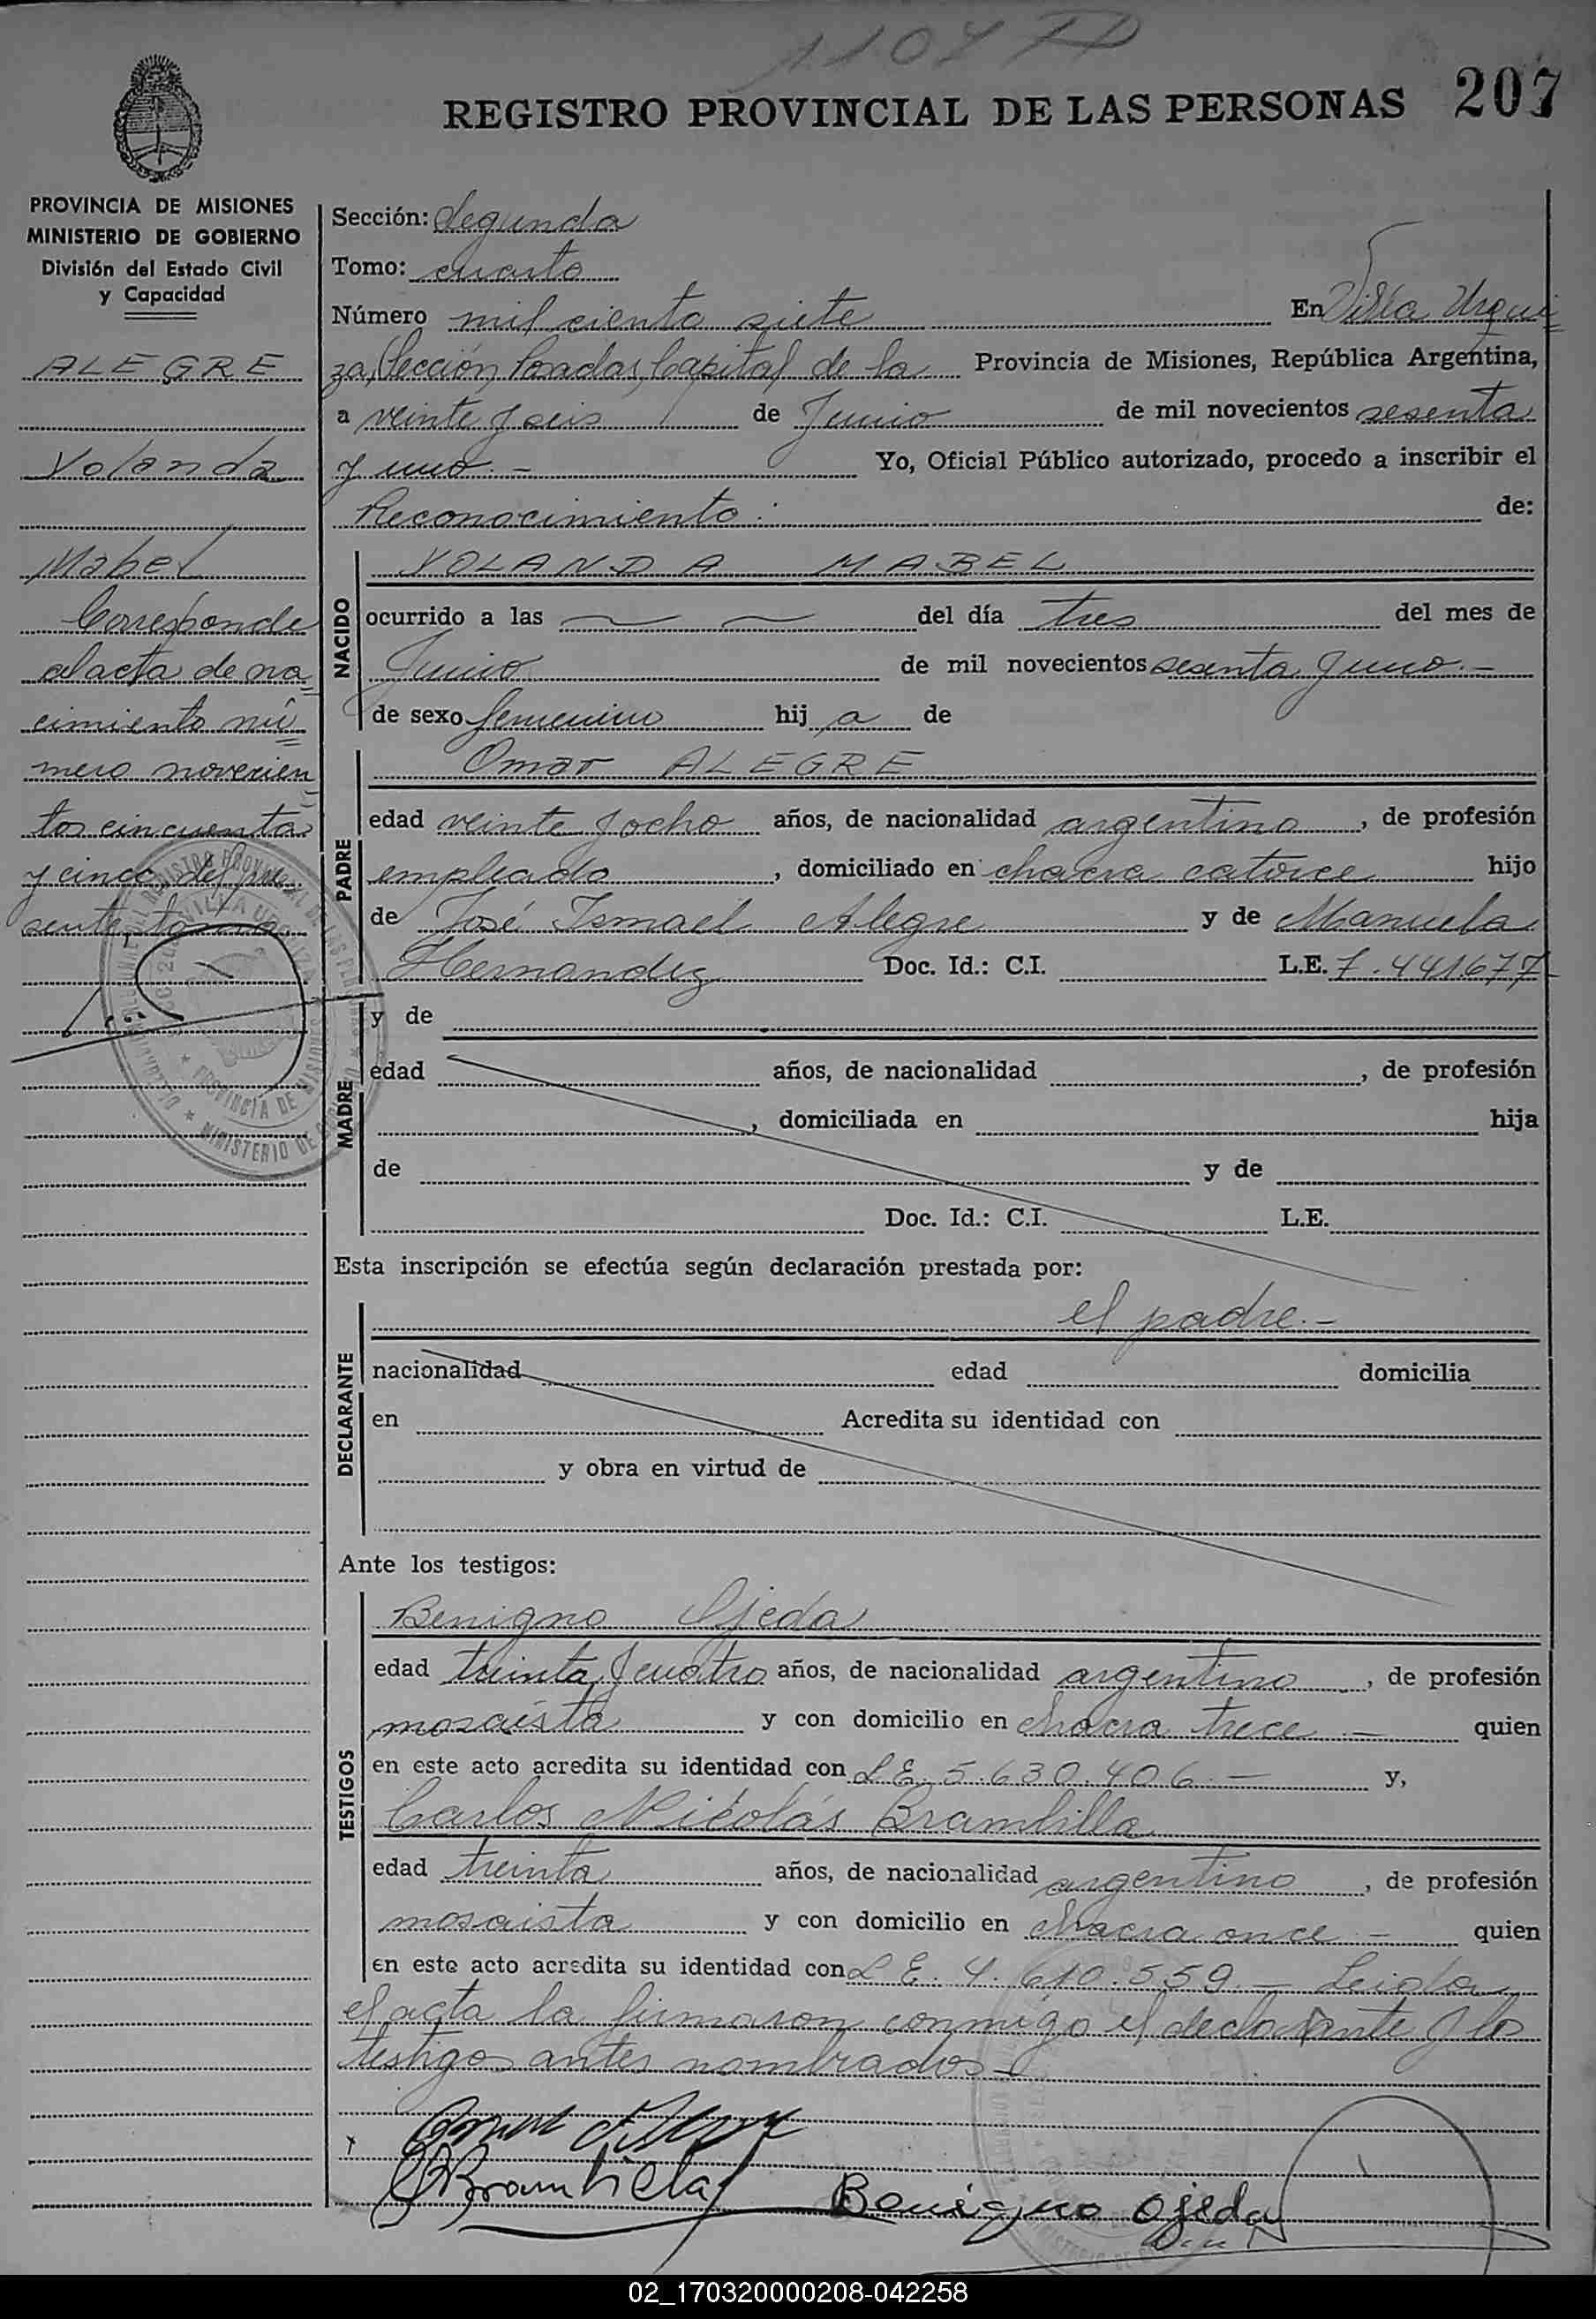 1107
REGISTRO PROVINCIAL DE LAS PERSONAS 207
PROVINCIA DE MISIONES
MINISTERIO DE GOBIERNO
División del Estado Civil
y Capacidad
ALEGRE
Yolanda
Mabel
Corresponde
al acta de na=
cimiento nú=
mero novecien=
tos cincuenta
y cinco del pre=
sente tomo
Sección: Segunda
Tomo: cuarto
Número mil ciento siete En Villa Urqui=
za, Sección Posadas, Capital de la Provincia de Misiones, República Argentina,
a veinte y seis de Junio de mil novecientos sesenta
y uno.- Yo, Oficial Público autorizado, procedo a inscribir el
Reconocimiento: de:
NACIDO
YOLANDA MABEL
ocurrido a las del día tres del mes de
Junio de mil novecientos sesenta y uno.-
de sexo femenino hij a de
PADRE
Omar ALEGRE
edad veinte y ocho años, de nacionalidad argentino, de profesión
empleado, domiciliado en chacra catorce hijo
de José Ismael Alegre y de Manuela
Hernandez Doc. Id.: C.I. L.E. 7.441677
MADRE
y de
edad años, de nacionalidad , de profesión
, domiciliada en hija
de y de
Doc. Id.: C.I. L.E.
Esta inscripción se efectúa según declaración prestada por:
DECLARANTE
el padre.-
nacionalidad edad domicilia
en Acredita su identidad con
y obra en virtud de
Ante los testigos:
TESTIGOS
Benigno Ojeda
edad treinta y cuatro años, de nacionalidad argentino, de profesión
mosaista y con domicilio en chacra trece - quien
en este acto acredita su identidad con L.E. 5.630.406.- y,
Carlos Nicolás Brambilla
edad treinta años, de nacionalidad argentino, de profesión
mosaista y con domicilio en chacra once - quien
en este acto acredita su identidad con L.E. 4.610.559.- Leida
el acta la firmaron conmigo el declarante y los
testigos antes nombrados.-
Brambilla
Benigno Ojeda
02_170320000208-042258